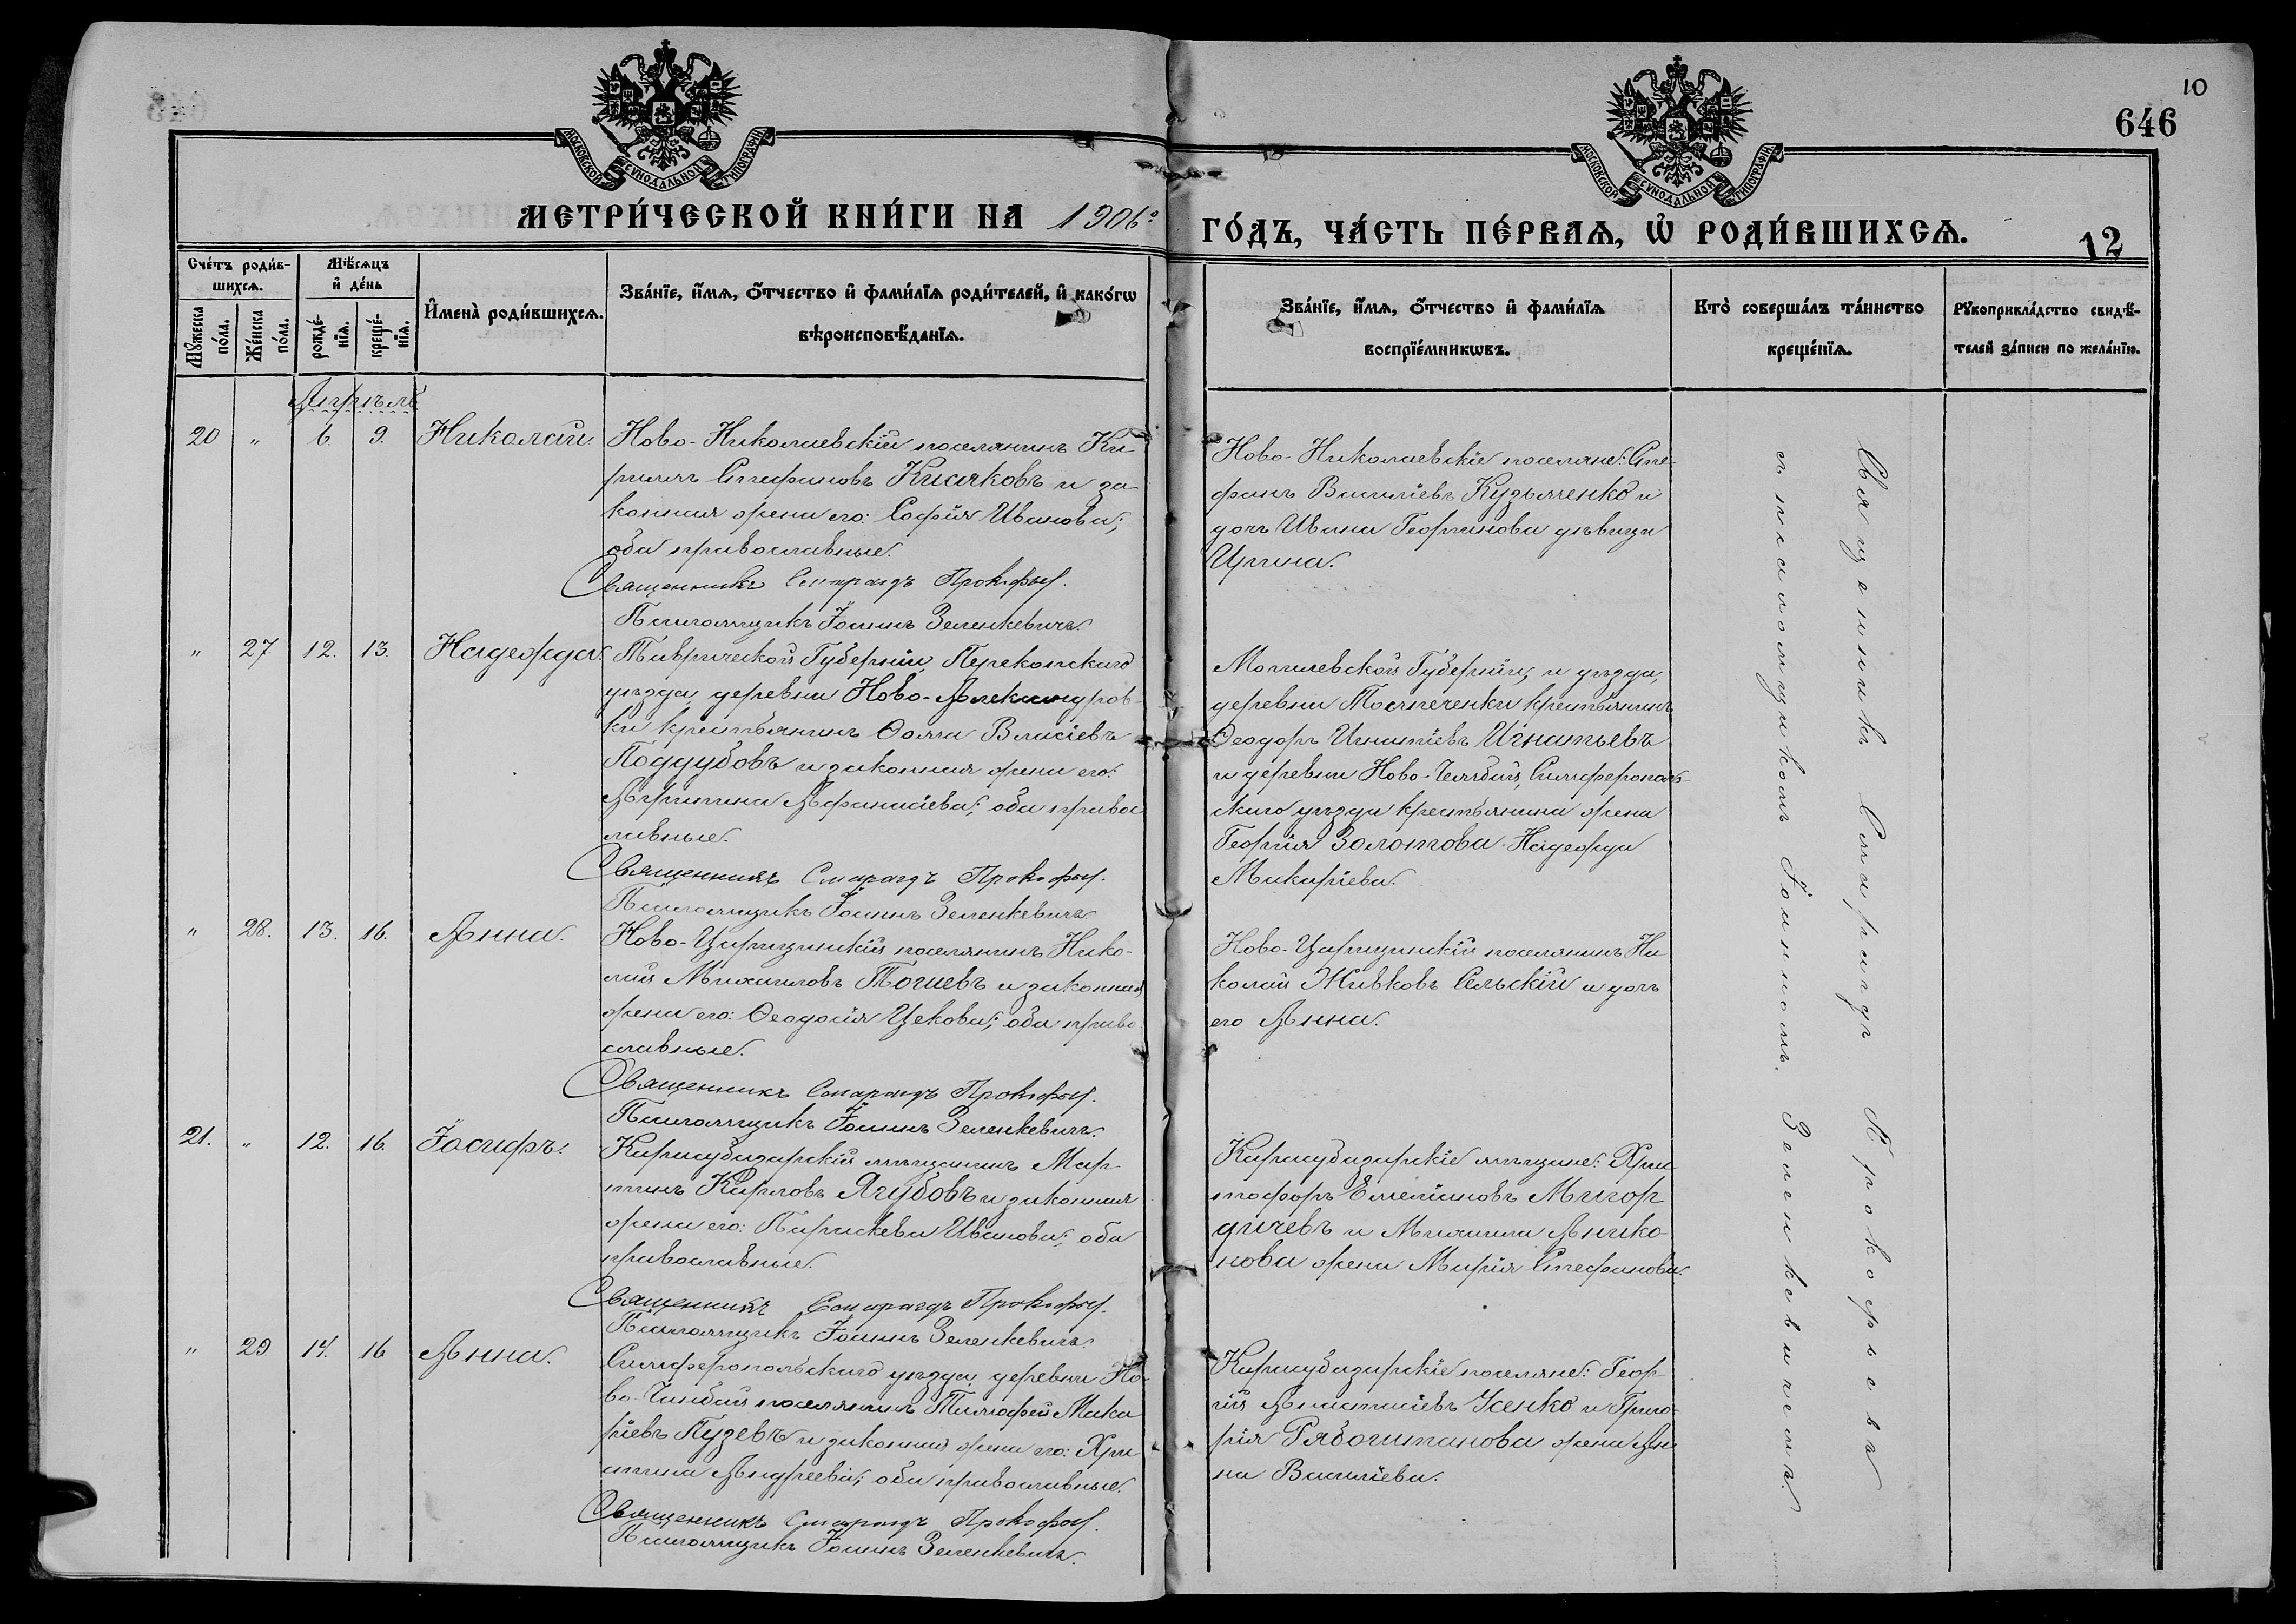 10
646
МОСКОВСКОЙ СѴНОДАЛЬНОЙ ТИПОГРАФІИ
МОСКОВСКОЙ СѴНОДАЛЬНОЙ ТИПОГРАФІИ
МЕТРИ́ЧЕСКОЙ КНИ́ГИ НА 1906º
ГО́ДЪ, ЧА́СТЬ ПЕ́РВАѦ, Ѡ҆ РОДИ́ВШИХСѦ.
12
Сче́тъ роди́в-
шихсѧ.
Мѣ́сѧцъ
и҆ де́нь
Мꙋ́жеска
по́ла.
Же́нска
по́ла.
рожде́-
нїѧ.
креще́-
нїѧ.
И҆мена̀ роди́вшихсѧ.
Зва́нїе, и҆́мѧ, ѻ҆́тчество и҆ фами́лїѧ роди́телей, и҆ како́гѡ
вѣроисповѣ́данїѧ.
Зва́нїе, и҆́мѧ, ѻ҆́тчество и҆ фами́лїѧ
воспрїе́мникѡвъ.
Кто̀ соверша́лъ та́инство
креще́нїѧ.
Рꙋкоприкла́дство свидѣ́-
телей за́писи по жела́нїю.
Апрѣль
20 " 6. 9. Николай
Ново-Николаевскій поселянинъ Ки-
риллъ Стефановъ Кисяковъ и за-
конная жена его: Софія Иванова;
оба православные.
Священникъ Смарагдъ Прокофьев.
Псаломщикъ Іоаннъ Зеленкевичъ.
Ново-Николаевскіе поселяне: Сте-
фанъ Василіевъ Кузьменко и
дочь Ивана Георгинова дѣвица
Ирина.
" 27. 12. 13. Надежда.
Таврической Губерніи, Перекопскаго
уѣзда, деревни Ново-Александров-
ки крестьянинъ Ѳома Власіевъ
Поддубовъ и законная жена его:
Агрипина Афанасіева; оба правос
лавные.
Священникъ Смарагдъ Прокофьев.
Псаломщикъ Іоаннъ Зеленкевичъ
Могилевской Губерніи, и уѣзда,
деревни крестьянинъ
Ѳеодоръ Игнатіевъ Игнатьевъ
и деревни Ново- Симферополь-
скаго уѣзда крестьянина жена
Георгія Золотова Надежда
Макаріева.
" 28. 13. 16. Анна.
Ново-Царицинскій поселянинъ Нико-
лай Михаиловъ Тогиевъ и законная
жена его: Ѳеодосія Цекова; оба право
славные.
Священникъ Смарагдъ Прокофьев.
Псаломщикъ Іоаннъ Зеленкевичъ.
Ново-Царицинскій поселянинъ Ни
колай Живковъ Сельскій и дочь
его Анна.
21. " 12. 16. Іосифъ.
Карасубазарскій мѣщанинъ Мар-
тинъ Карповъ Ягубовъ и законная
жена его: Параскева Иванова; оба
православные.
Священникъ Смарагдъ Прокофьев.
Псаломщикъ Іоаннъ Зеленкевичъ.
Карасубазарскіе мѣщане: Хрис
тофоръ Емеліановъ Мигор
дичевъ и Михаила Анико-
нова жена Марія Стефанова.
" 29 14. 16 Анна.
Симферопольскаго уѣзда, деревни Но-
во- поселянинъ Тимофей Мака
ріевъ Пузевъ и законная жена его: Хри
стина Андреева; оба православные.
Священникъ Смарагдъ Прокофьев.
Псаломщикъ Іоаннъ Зеленкевичъ.
Карасубазарскіе поселяне: Геор-
гій Анастасіевъ Усенко и Григо-
рія Рябоштанова жена Ан
на Василіева.
Священникъ Смарагдъ Прокофьевъ
съ псаломщикомъ Іоанномъ Зеленкевичемъ.